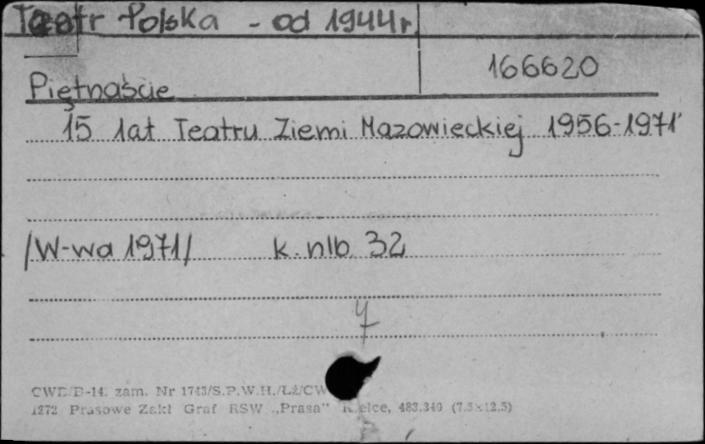 Teatr Polska - od 1944 r.
166620
Piętnaście
15 lat Teatru Ziemi Mazowieckiej 1956-1971
/W-wa 1971/ k. nlb. 32
CWD/B-14. zam. Nr 1743/S.P.W.H./ŁŻ/CW
1272 Prasowe Zakł Graf RSW „Prasa” Kielce, 483.340 (7.5x12.5)